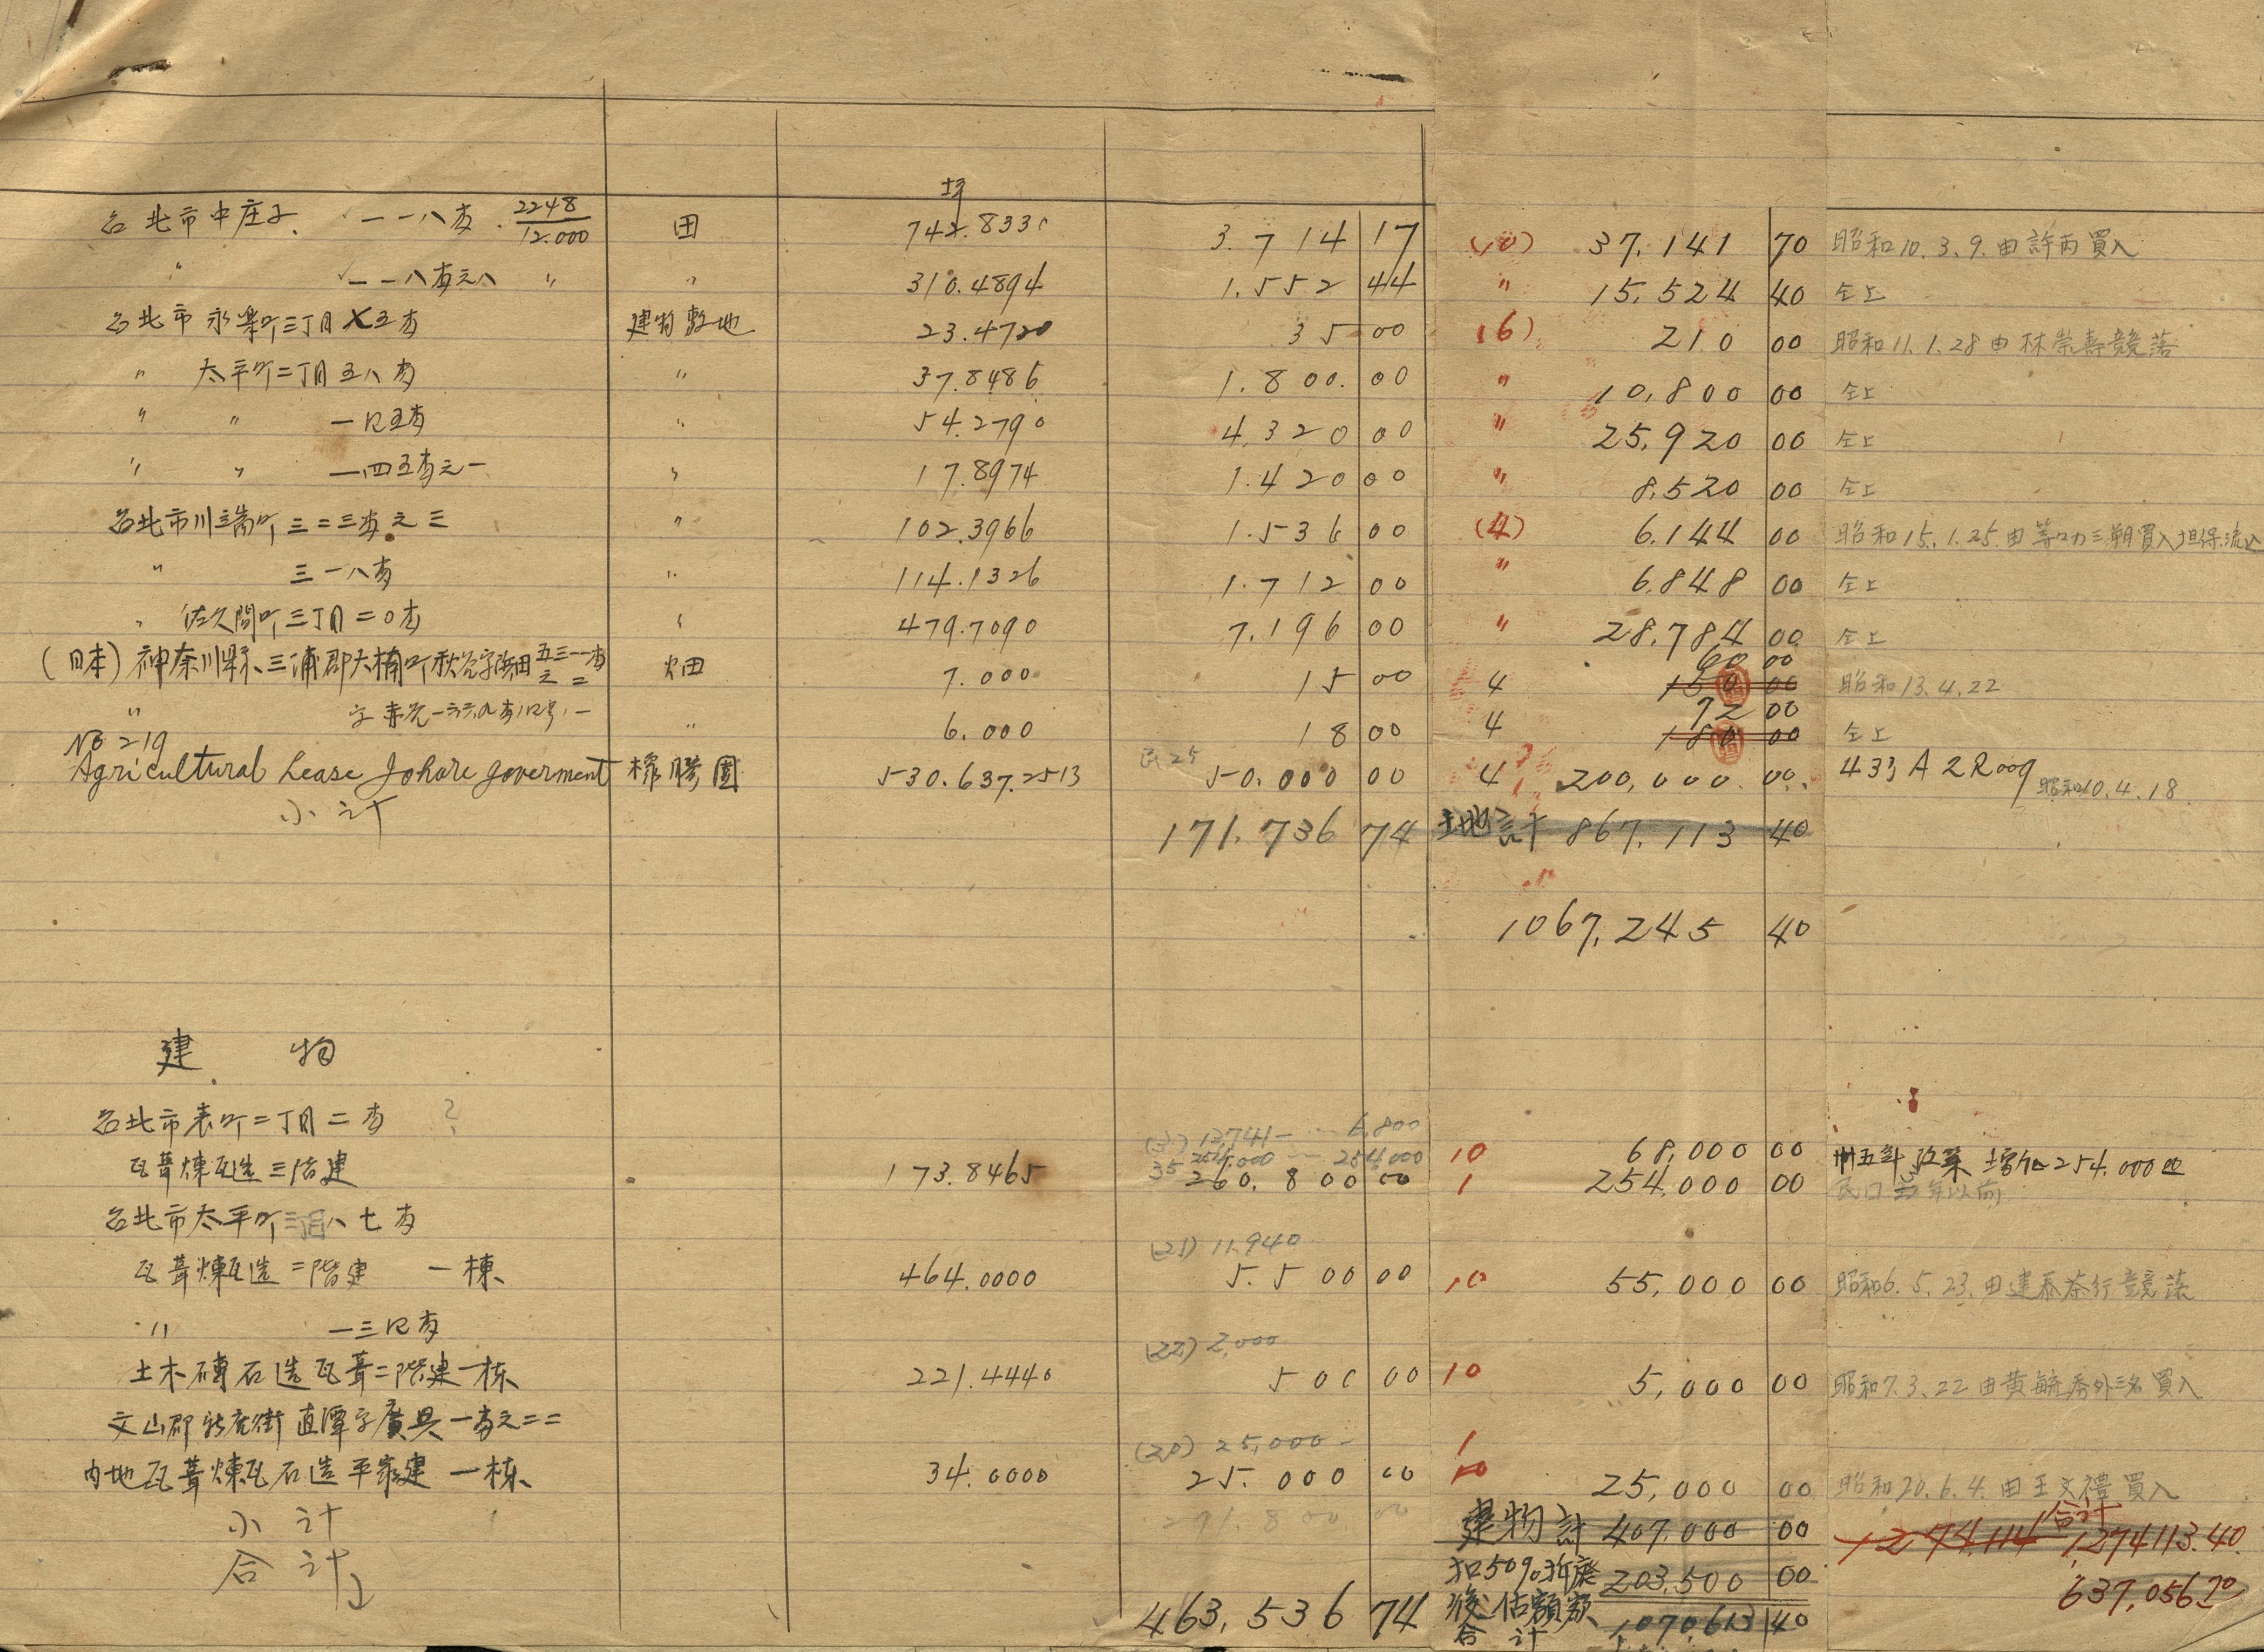 坪
台北市中庄子 一一八番 2248/12.000 田 742.833 3.714 17 (10) 37,141 70 昭和10.3.9.由許丙買入
〃 一一八番之八 〃 〃 310.4894 1.552 44 〃 15,524 40 仝上
台北市永楽町三丁目 五番 建物敷地 23.4720 35 00 (6) 210 00 昭和11.1.28由林崇壽競落
〃 太平町二丁目五八番 〃 37.8486 1.800.00 〃 10,800 00 仝上
〃 〃 54.2790 4,320 00 〃 25,920 00 仝上
〃 〃 一四五番之一 〃 17.8974 1.420 00 〃 8,520 00 仝上
台北市川端町三二三番之三 〃 102.3966 1.536 00 (4) 6,144 00 昭和15.1.25.由 買入
〃 三一八番 〃 114.1326 1.712 00 〃 6,848 00 仝上
〃 佐久間町三丁目二0番 〃 479.7090 7.196 00 〃 28,784 00 仝上
60 00
(日本)神奈川縣三浦郡大楠町秋谷字浜田五三一一番之二 畑 7.000 15 00 4 150 00 昭和13.4.22
72 00
〃 字 〃 6.000 18 00 4 180 00 仝上
No 219
Agricultural Lease Johore goverment 橡膠園 530.637.2513 民25 50.000 00 4 200,000 00 433 A 2R 00q 昭和10.4.18
小計 171.736 74 土地計 867,113 40
1067,245 40
建物
台北市表町二丁目二番 ?
(3) 13,741— 6,800
瓦葺煉瓦造三階建 173.8465 35 254,000 254,000 10 68,000 00 卅五年改築増加254.000 00
260.800 00 1 254,000 00 年以前
台北市太平町三丁目八七番
(21) 11.940
瓦葺煉瓦造二階建 一棟 464.0000 5.500 00 10 55,000 00 昭和6.5.23.由建泰茶行競落
〃
(22) 2,000
土木磚石造瓦葺二階建一栋 221.4440 500 00 10 5,000 00 昭和7.3.22由黄毓秀外三名買入
文山郡新店街直潭字廣興一番之二二
(20) 25,000— 1
内地瓦葺煉瓦石造平家建一栋 34.0000 25.000 00 10 25,000 00 昭和20.6.4.由王文禮買入
小計 291.800 00 建物計 407,000 00 1274,114 合計 1,274113.40
合計 扣50%折旧 203,500 00 637,056 70
463,536 74 後估價額
合計 1,070,613 40